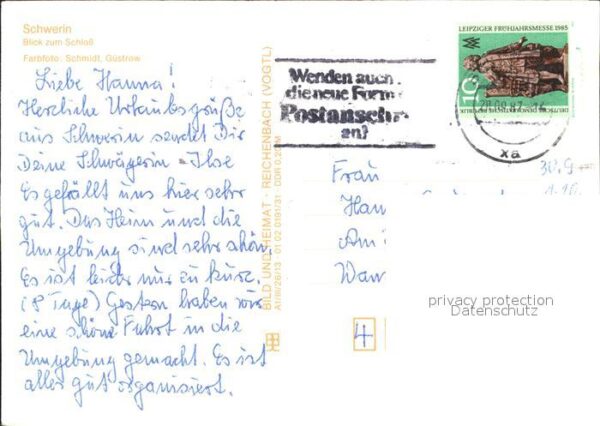 Schwerin
Blick zum Schloß
Farbfoto: Schmidt, Güstrow
Liebe Hanna!
Herzliche Urlaubsgrüße
aus Schwerin sendet Dir
Deine Schwägerin Ilse
Es gefällt uns hier sehr
gut. Das Heim und die
Umgebung sind sehr schön.
Es ist leider nur zu kurz.
(8 Tage) Gestern haben wir
eine schöne Fahrt in die
Umgebung gemacht. Es ist
alles gut organisiert.
BILD UND HEIMAT · REICHENBACH (VOGTL)
A1/III/26/13 01 02 019731 DDR 0,20 M
Wenden auch
die neue Form
Postanschr
an!
LEIPZIGER FRÜHJAHRSMESSE 1985
10
DEUTSCHE DEMOKRATISCHE REPUBLIK
xa
Frau
Han
Am
Wan
4
30.9
privacy protection
Datenschutz